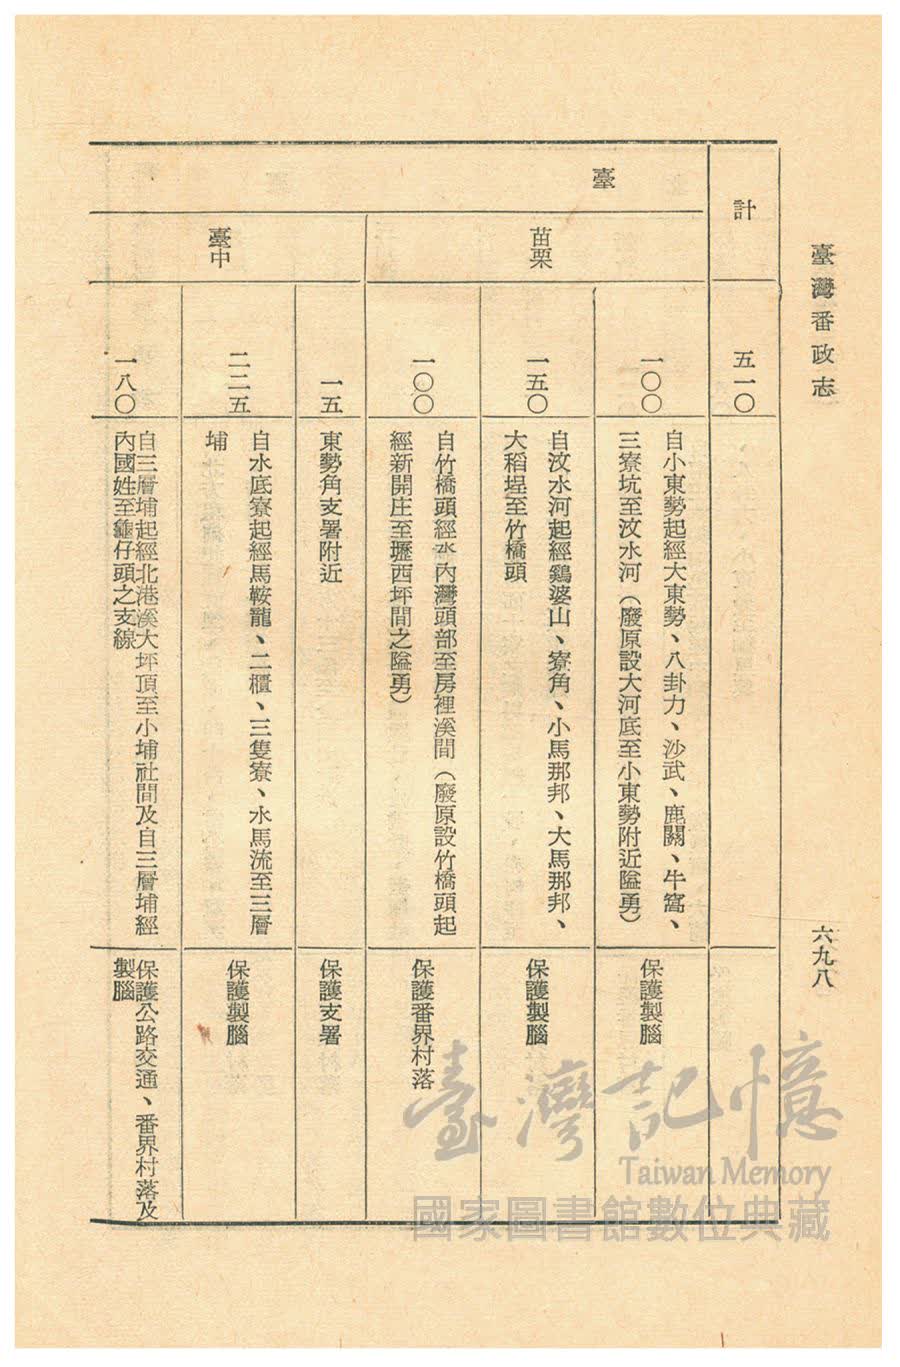 臺灣番政志
六九八
計
五一〇
臺
苗栗
一〇〇
自小東勢起經大東勢、八卦力、沙武、鹿關、牛窩、
三寮坑至汶水河(廢原設大河底至小東勢附近隘勇)
保護製腦
一五〇
自汶水河起經鷄婆山、寮角、小馬那邦、大馬那邦、
大稻埕至竹橋頭
保護製腦
一〇〇
自竹橋頭經水內灣頭部至房裡溪間(廢原設竹橋頭起
經新開庄至壢西坪間之隘勇)
保護番界村落
臺中
一五
東勢角支署附近
保護支署
二二五
自水底寮起經馬鞍龍、二櫃、三隻寮、水馬流至三層
埔
保護製腦
一八〇
自三層埔起經北港溪大坪頂至小埔社間及自三層埔經
內國姓至龜仔頭之支線
保護公路交通、番界村落及
製腦
臺灣記憶
Taiwan Memory
國家圖書館數位典藏